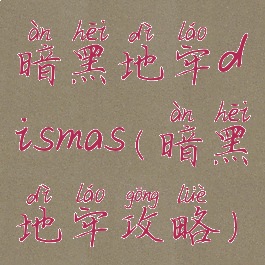 àn hēi dì láo
暗黑地牢d
àn hēi
ismas(暗黑
dì láo gōng lüè
地牢攻略)